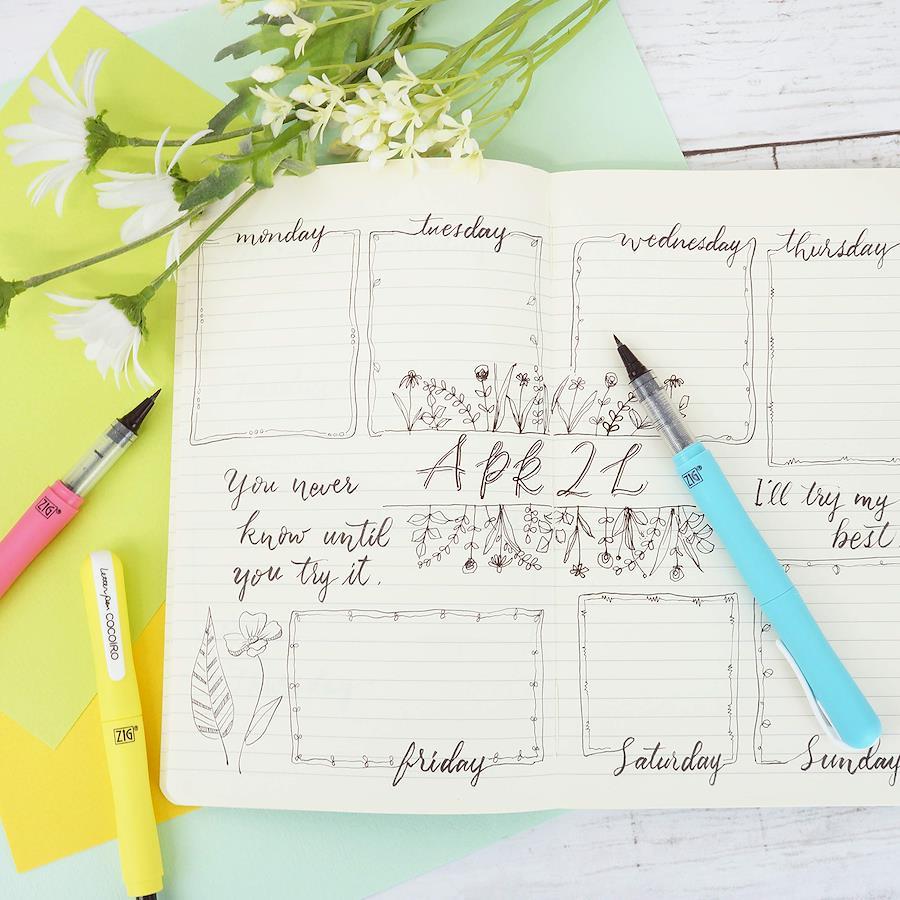 monday
tuesday
wednesday
thursday
APRIL
You never
know until
you try it.
I'll try my
best
friday
Saturday
Sunday
ZIG®
ZIG®
Letter pen COCOIRO
ZIG®